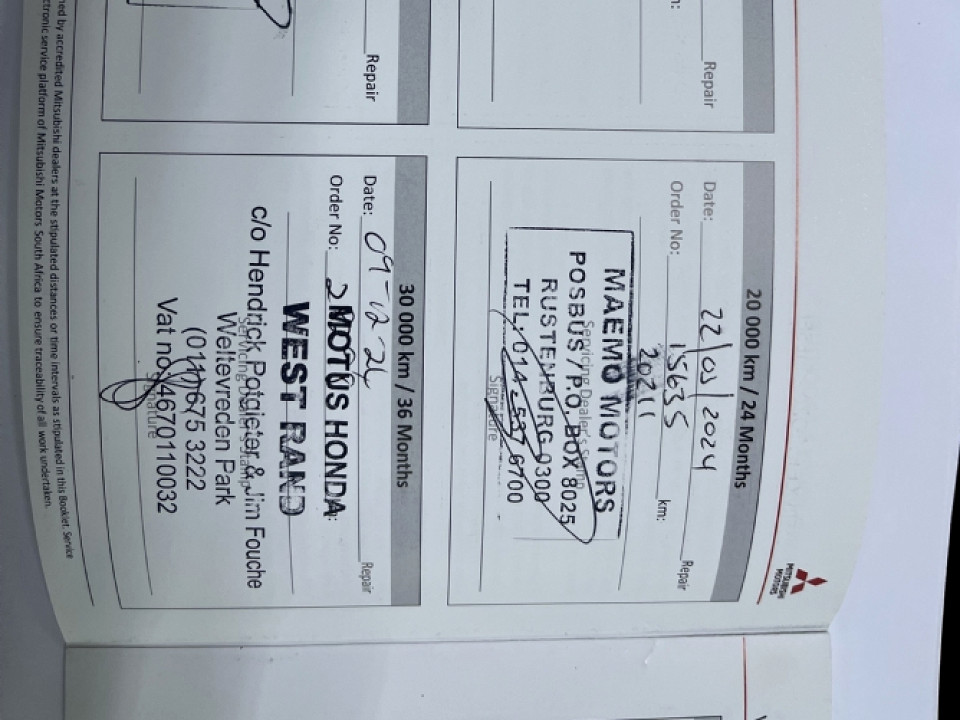 MITSUBISHI
MOTORS
Repair
20 000 km / 24 Months
Date: 22/03/2024 Repair
Order No: 15635 km:
20211
Servicing Dealer's Stamp
MAEMO MOTORS
POSBUS / P.O. BOX 8025
RUSTENBURG 0300
TEL: 014 - 537 6700
Signature
Repair
30 000 km / 36 Months
Date: 09-12-24 Repair
Order No: 2
MOTUS HONDA
WEST RAND
Servicing Dealer's Stamp
c/o Hendrick Potgieter & Jim Fouche
Weltevreden Park
(011) 675 3222
Vat no: 4670110032
Signature
by accredited Mitsubishi dealers at the stipulated distances or time intervals as stipulated in this Booklet. Service
service platform of Mitsubishi Motors South Africa to ensure traceability of all work undertaken.